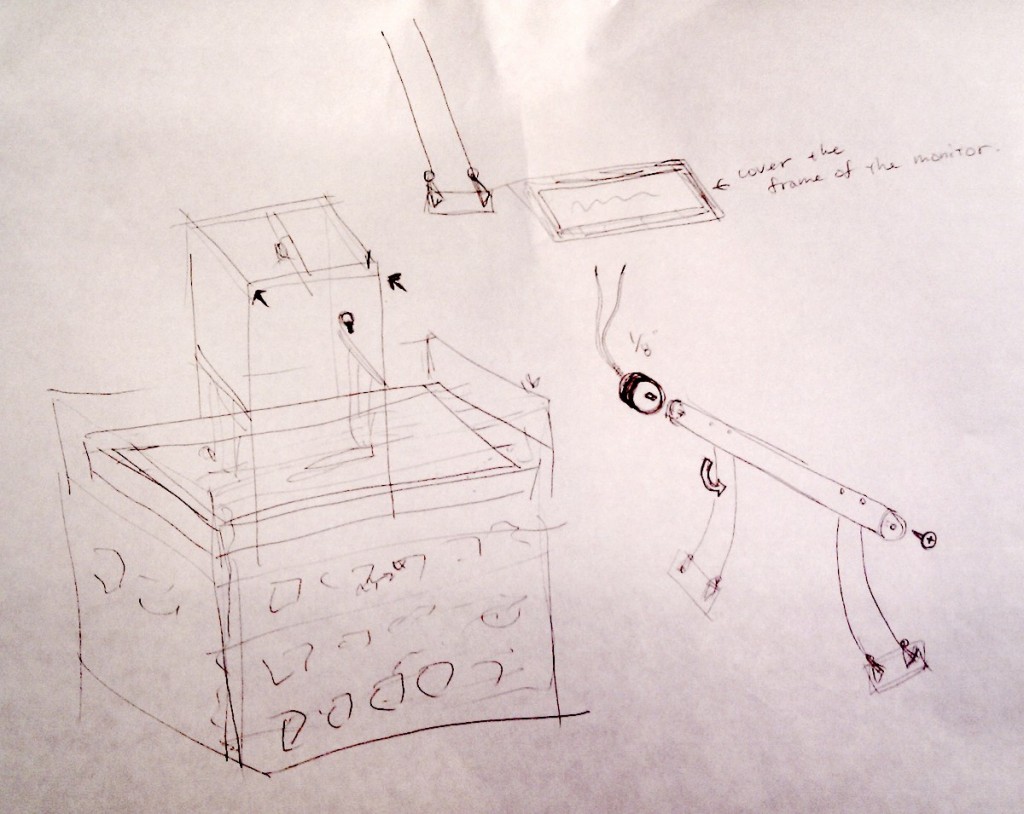 ← cover the
frame of the monitor.
1/8"